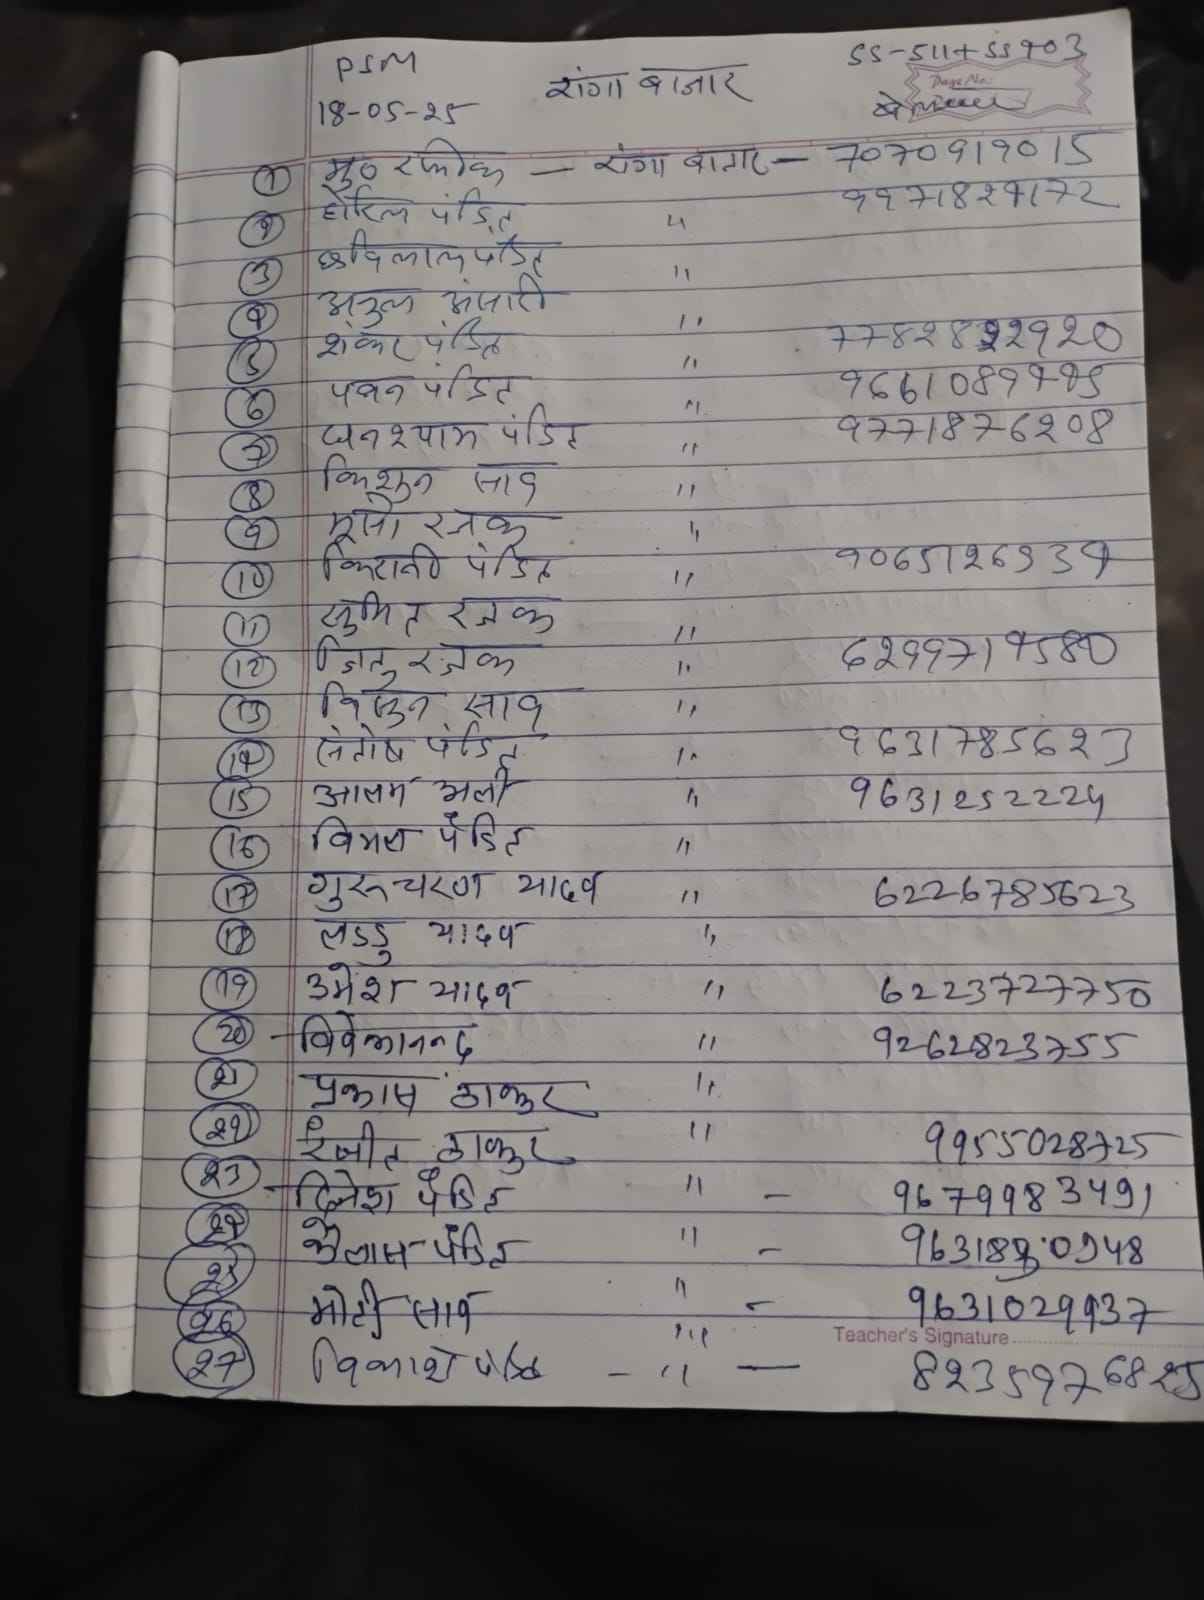 PSM
रांगा बाजार
SS-511+SS903
18-05-25
Page No.:
① मु० रफीक — रांगा बाजार — 7070919015
② होरिल पंडित "
③ छविलाल पंडित "
④ अंसारी "
⑤ शंकर पंडित "
⑥ पवन पंडित "
⑦ घनश्याम पंडित " 9771876208
⑧ किशुन साव "
⑨ रजक "
⑩ पंडित "
⑪ सुमित रजक "
⑫ जितु रजक "
⑬ विशुन साव "
⑭ संतोष पंडित " 9631785623
⑮ आलम अली " 9631252224
⑯ विमल पंडित "
⑰ गुरूचरण यादव " 6226785623
⑱ लडडु यादव "
⑲ उमेश यादव " 6223727750
⑳ विवेकानन्द " 9262823755
㉑ प्रकास ठाकुर "
㉒ रंजीत ठाकुर " 9955028725
㉓ दिनेश पंडित " - 9679983491
㉔ कैलास पंडित " -
㉕ "
㉖ मोती साव " - 9631029937
Teacher's Signature
㉗ विकाश पंडित - " — 8235976825